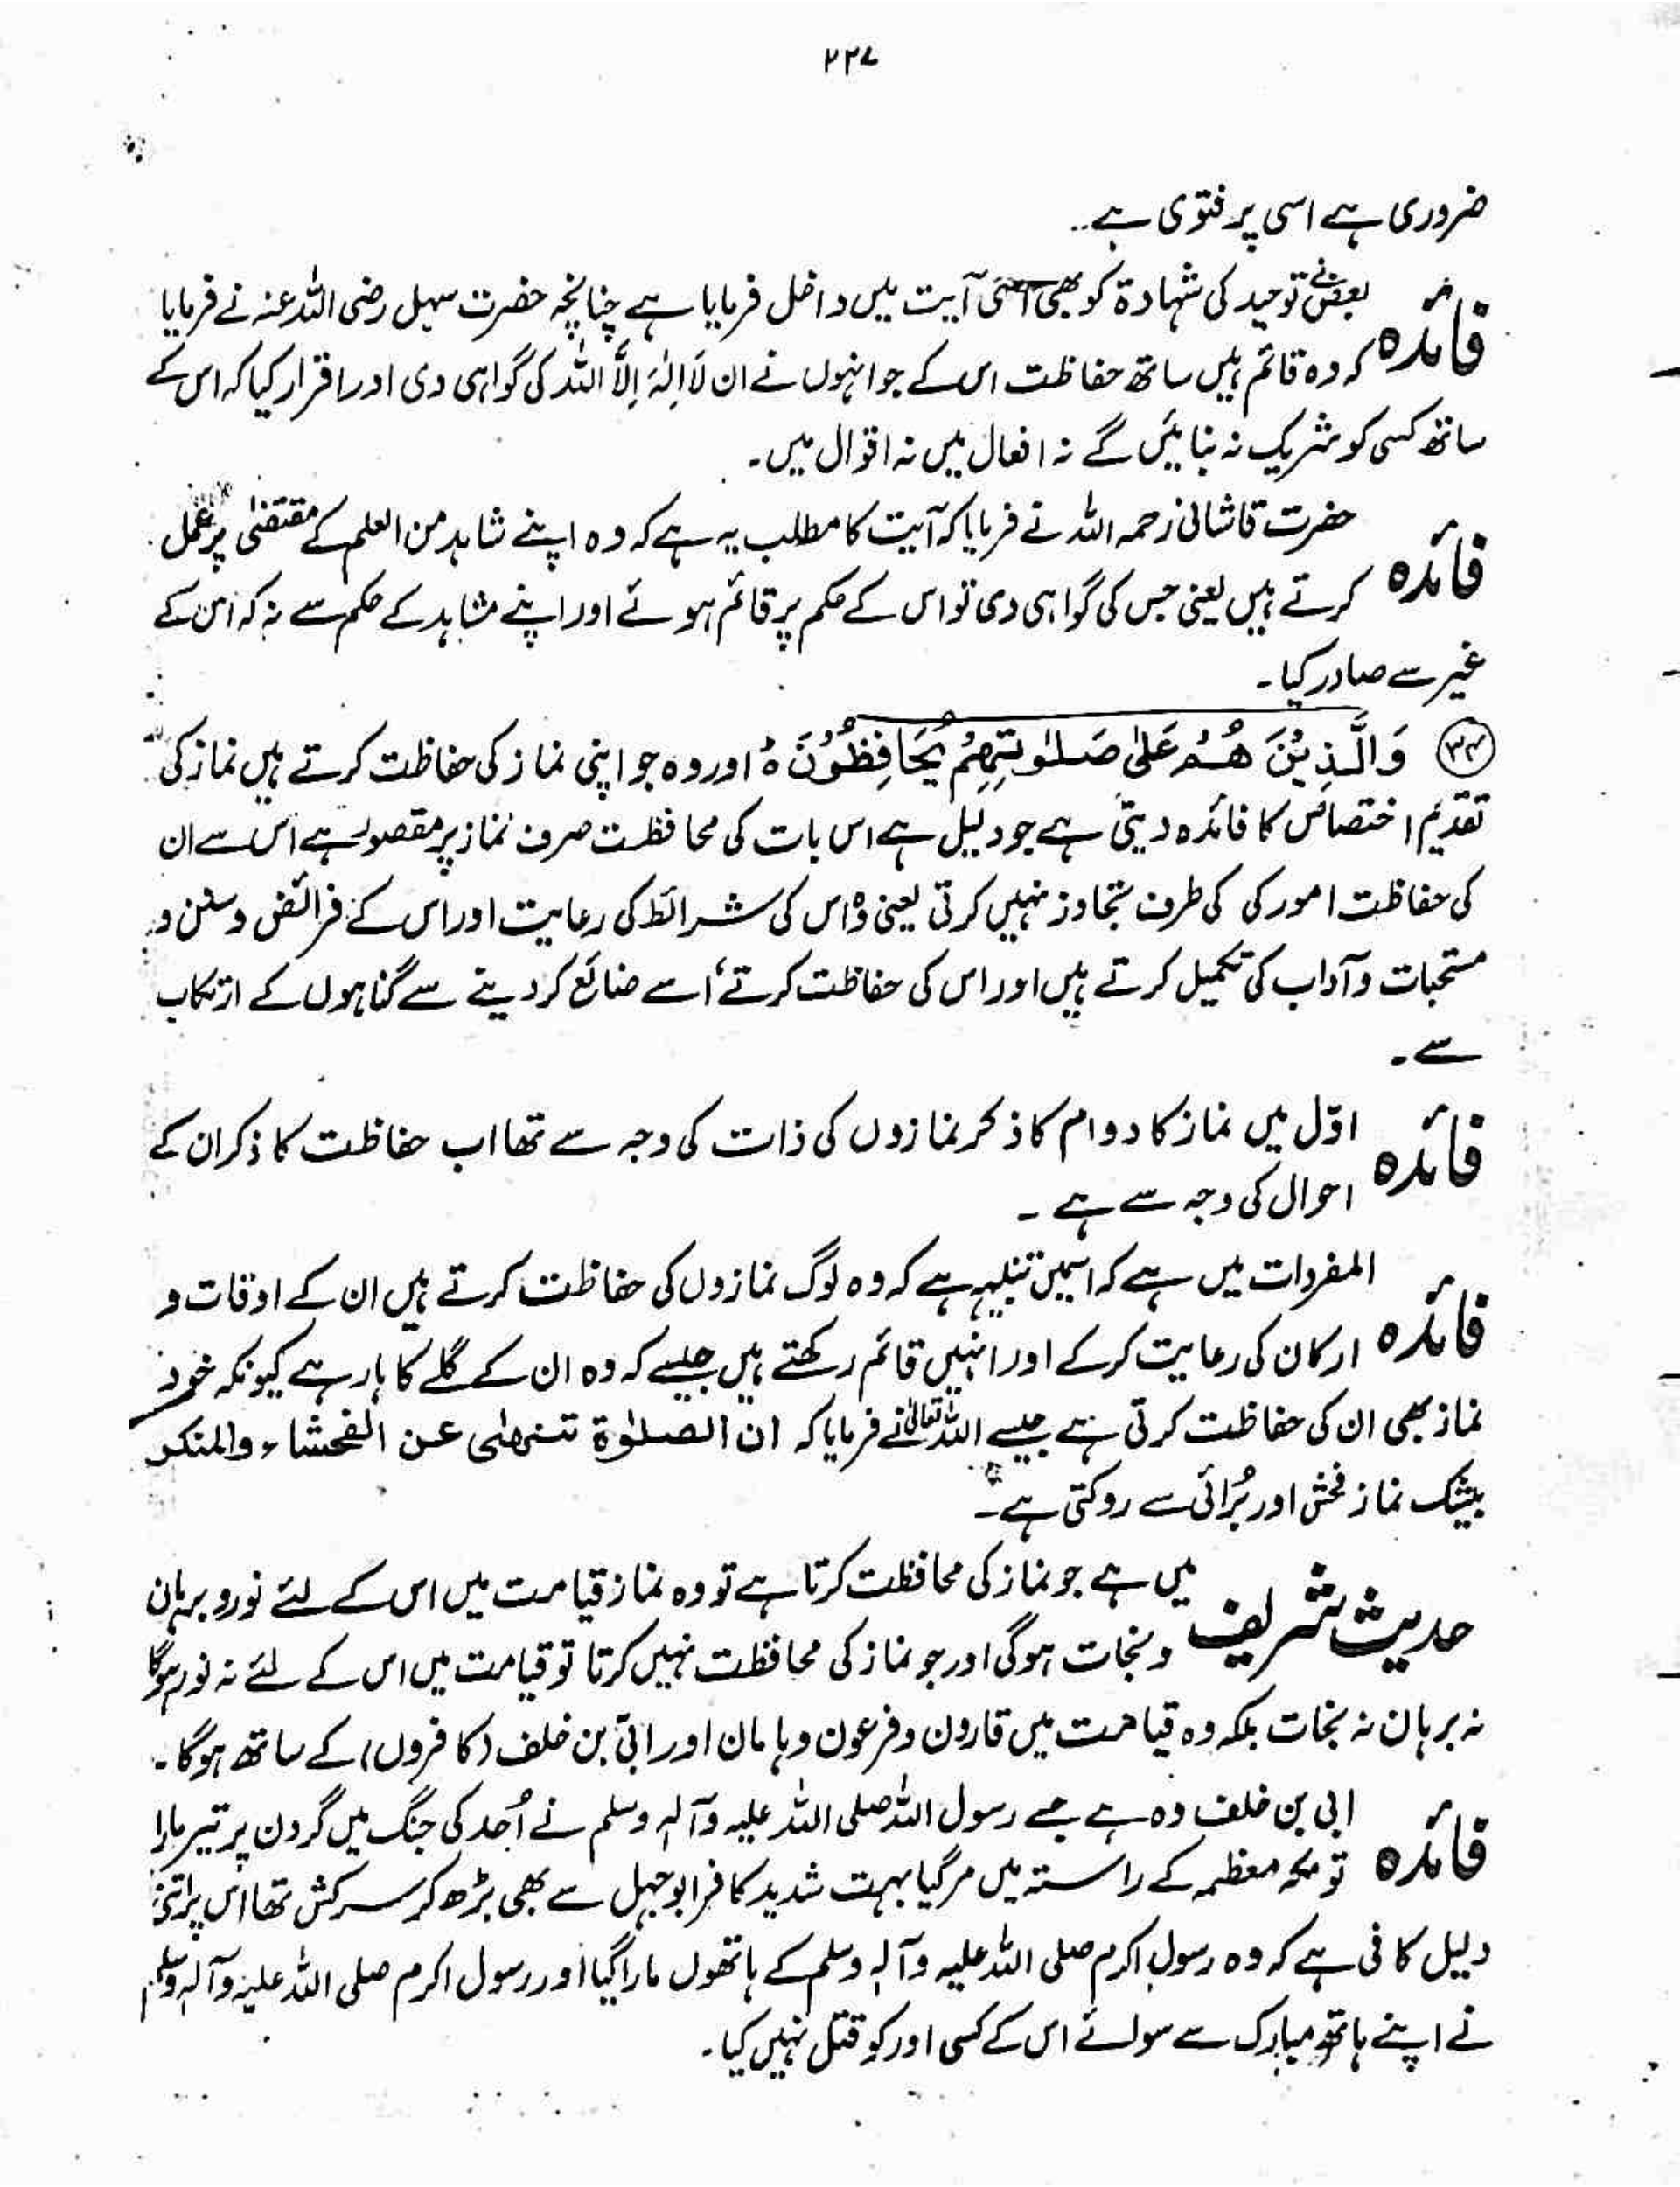 ۲۲۷
ضروری ہے اسی پر فتوی ہے۔
فائدہ بعض نے توحید کی شہادۃ کو بھی اسی آیت میں داخل فرمایا ہے چنانچہ حضرت سہل رضی اللہ عنہ نے فرمایا
کہ وہ قائم ہیں ساتھ حفاظت اس کے جو انہوں نے ان لَا اِلٰہَ اِلَّا اللہ کی گواہی دی اور اقرار کیا کہ اس کے
ساتھ کسی کو شریک نہ بنائیں گے نہ افعال میں نہ اقوال میں۔
فائدہ حضرت قاشانی رحمہ اللہ نے فرمایا کہ آیت کا مطلب یہ ہے کہ وہ اپنے شاہد من العلم کے مقتضٰی پر عمل
کرتے ہیں یعنی جس کی گواہی دی تو اس کے حکم پر قائم ہوئے اور اپنے مشاہد کے حکم سے نہ کہ اس کے
غیر سے صادر کیا۔
۳۴ وَالَّذِیْنَ ھُمْ عَلٰی صَلٰوتِھِمْ یُحَافِظُوْنَ ہ اور وہ جو اپنی نماز کی حفاظت کرتے ہیں نماز کی
تقدیم اختصاص کا فائدہ دیتی ہے جو دلیل ہے اس بات کی محافظت صرف نماز پر مقصور ہے اس سے ان
کی حفاظت امور کی کی طرف تجاوز نہیں کرتی یعنی وہ اس کی شرائط کی رعایت اور اس کے فرائض و سنن و
مستحبات و آداب کی تکمیل کرتے ہیں اور اس کی حفاظت کرتے، اسے ضائع کر دینے سے گناہوں کے ارتکاب
سے۔
فائدہ اوّل میں نماز کا دوام کا ذکر نمازوں کی ذات کی وجہ سے تھا اب حفاظت کا ذکر ان کے
احوال کی وجہ سے ہے۔
فائدہ المفردات میں ہے کہ اسمیں تنبیہہ ہے کہ وہ لوگ نمازوں کی حفاظت کرتے ہیں ان کے اوقات و
ارکان کی رعایت کر کے اور انہیں قائم رکھتے ہیں جیسے کہ وہ ان کے گلے کا ہار ہے کیونکہ خود
نماز بھی ان کی حفاظت کرتی ہے جیسے اللہ تعالیٰ نے فرمایا کہ ان الصلٰوۃ تنھٰی عن الفحشاء والمنکر
بیشک نماز فحش اور بُرائی سے روکتی ہے۔
حدیث شریف میں ہے جو نماز کی محافظت کرتا ہے تو وہ نماز قیامت میں اس کے لئے نور و برہان
و نجات ہوگی اور جو نماز کی محافظت نہیں کرتا تو قیامت میں اس کے لئے نہ نور ہوگا
نہ برہان نہ نجات بلکہ وہ قیامت میں قارون و فرعون و ہامان اور ابی بن خلف (کافروں) کے ساتھ ہوگا۔
فائدہ ابی بن خلف وہ ہے جسے رسول اللہ صلی اللہ علیہ وآلہ وسلم نے اُحد کی جنگ میں گردن پر تیر مارا
تو مکہ معظمہ کے راستہ میں مر گیا بہت شدید کافر ابوجہل سے بھی بڑھ کر سرکش تھا اس پر اتنی
دلیل کافی ہے کہ وہ رسول اکرم صلی اللہ علیہ وآلہ وسلم کے ہاتھوں مارا گیا اور رسول اکرم صلی اللہ علیہ وآلہ وسلم
نے اپنے ہاتھ مبارک سے سوائے اس کے کسی اور کو قتل نہیں کیا۔